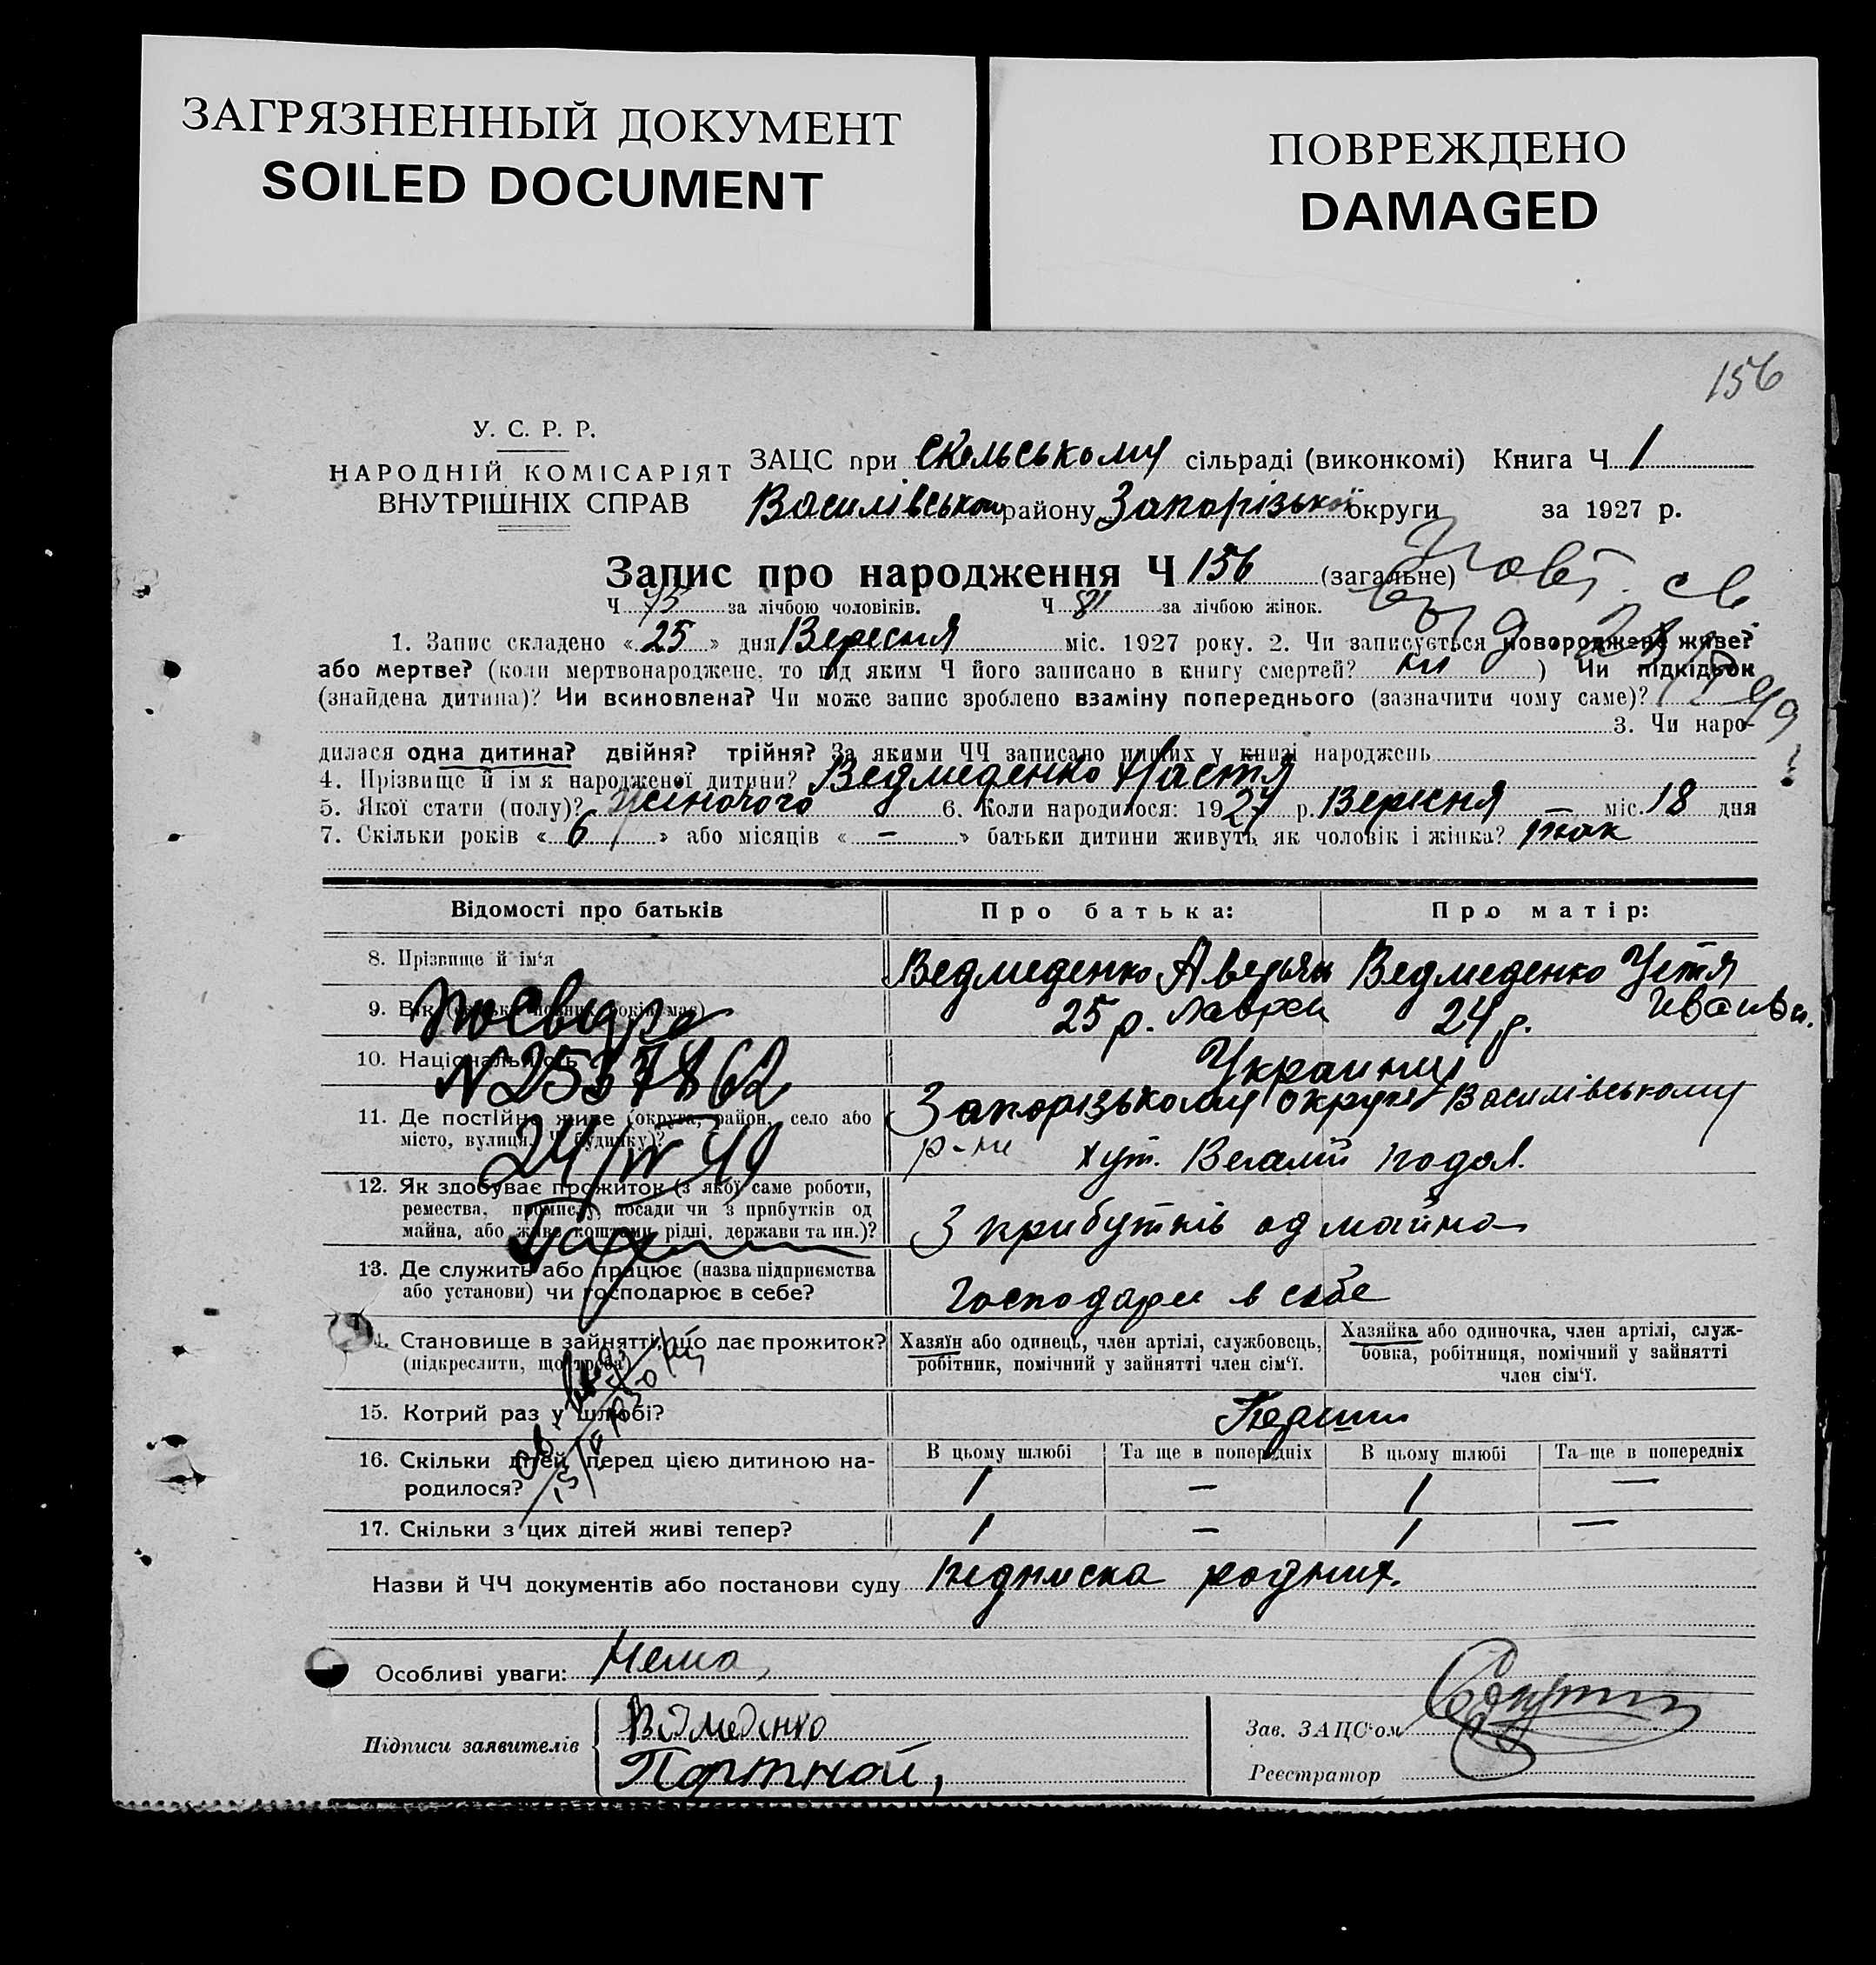 ЗАГРЯЗНЕННЫЙ ДОКУМЕНТ
SOILED DOCUMENT
ПОВРЕЖДЕНО
DAMAGED
156
У. С. Р. Р.
НАРОДНІЙ КОМІСАРІЯТ
ВНУТРІШНІХ СПРАВ
ЗАЦС при Скельському сільраді (виконкомі) Книга Ч 1
Василівськом району Запорізької округи за 1927 р.
Запис про народження Ч 156 (загальне)
Ч 75 за лічбою чоловіків. Ч 81 за лічбою жінок.
1. Запис складено «25» дня Вересня міс. 1927 року. 2. Чи записується новороджене живе?
або мертве? (коли мертвонароджене, то під яким Ч його записано в книгу смертей? ) Чи підкідьок
(знайдена дитина)? Чи всиновлена? Чи може запис зроблено взаміну попереднього (зазначити чому саме)?
3. Чи наро-
дилася одна дитина? двійня? трійня? За якими ЧЧ записано инших у книзі народжень
4. Прізвище й ім'я народженої дитини? Ведмеденко Настя
5. Якої стати (полу)? жіночого 6. Коли народилося: 1927 р. Вересня міс. 18 дня
7. Скільки років «6» або місяців «—» батьки дитини живуть як чоловік і жінка? так
Відомості про батьків Про батька: Про матір:
8. Прізвище й ім'я Ведмеденко Аверьян Ведмеденко Устя
9. Вік (скільки повних років має) 25 р. Лаврен 24 р. Иванівн.
Посвидре
N 2537862
24/IV 49
10. Національність Украинці
11. Де постійно живе (округа, район, село або
місто, вулиця, Ч будинку)?
Запорізькому округу Василівському
р-ні хут. Велик подол.
12. Як здобуває прожиток (з якої саме роботи,
ремества, промислу, посади чи з прибутків од
майна, або живе коштами рідні, держави та ин.)?
З прибутків од майна
13. Де служить або працює (назва підприємства
або установи) чи господарює в себе?
Господарює в себе
14. Становище в зайнятті, що дає прожиток?
(підкреслити, що треба)
Хазяїн або одинець, член артілі, службовець,
робітник, помічний у зайнятті член сім'ї.
Хазяйка або одиночка, член артілі, служ-
бовка, робітниця, помічний у зайнятті
член сім'ї.
15. Котрий раз у шлюбі? Перший
16. Скільки дітей перед цією дитиною на-
родилося?
В цьому шлюбі Та ще в попередніх В цьому шлюбі Та ще в попередніх
1 — 1 —
17. Скільки з цих дітей живі тепер? 1 — 1 —
Назви й ЧЧ документів або постанови суду підписка родних.
Особливі уваги: Нема
Підписи заявителів Видмеденко
Портной,
Зав. ЗАЦС'ом
Реєстратор